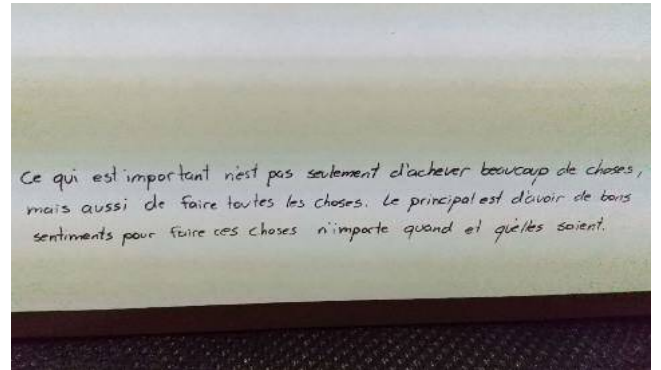 Ce qui est important n'est pas seulement d'achever beaucoup de choses,
mais aussi de faire toutes les choses. Le principal est d'avoir de bons
sentiments pour faire ces choses n'importe quand et qu'elles soient.